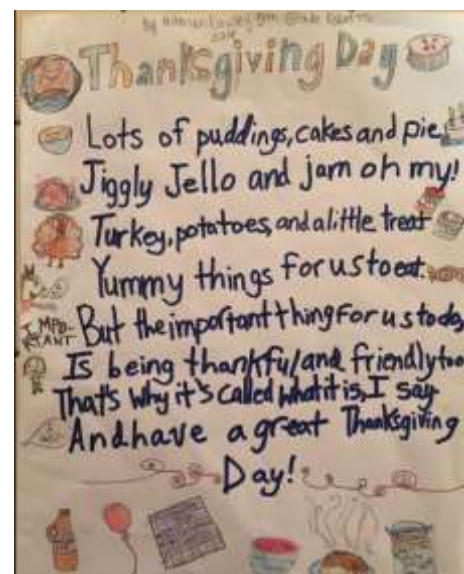 Thanksgiving Day
Lots of puddings, cakes and pie,
Jiggly Jello and jam oh my!
Turkey, potatoes, and a little treat
Yummy things for us to eat.
But the important thing for us to do,
Is being thankful and friendly too
That's why it's called what it is, I say
And have a great Thanksgiving
Day!